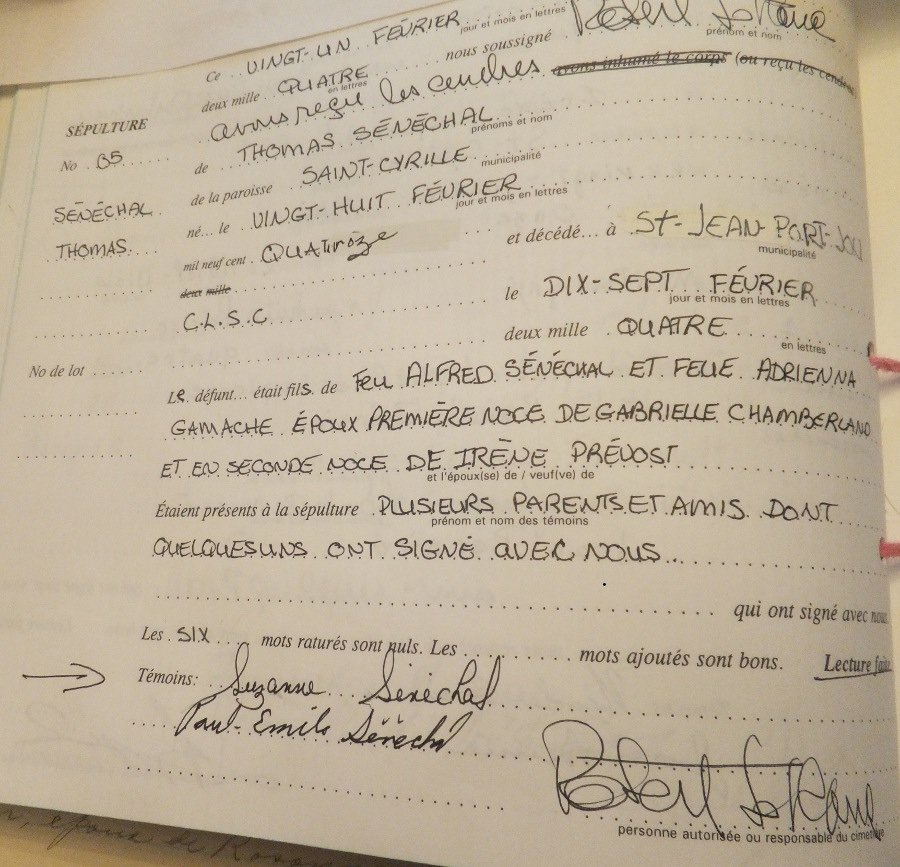 Ce VINGT-UN FÉVRIER
jour et mois en lettres
nous soussigné Robert
prénom et nom
deux mille QUATRE
en lettres
avons reçu les cendres avons inhumé le corps (ou reçu les cendres
SÉPULTURE
No G5
SÉNÉCHAL
THOMAS
No de lot
de THOMAS SÉNÉCHAL
prénoms et nom
de la paroisse SAINT-CYRILLE
municipalité
né... le VINGT-HUIT FÉVRIER
jour et mois en lettres
mil neuf cent QUATORZE et décédé... à St-JEAN-PORT-JOLI
municipalité
deux mille
C.L.S.C le DIX-SEPT FÉVRIER
jour et mois en lettres
deux mille QUATRE
en lettres
Le défunt... était fils de Feu ALFRED SÉNÉCHAL ET FEUE ADRIENNA
GAMACHE ÉPOUX PREMIÈRE NOCE DE GABRIELLE CHAMBERLAND
ET EN SECONDE NOCE DE IRÈNE PRÉVOST
et l'époux(se) de / veuf(ve) de
Étaient présents à la sépulture PLUSIEURS PARENTS ET AMIS DONT
prénom et nom des témoins
QUELQUES UNS ONT SIGNÉ AVEC NOUS...
qui ont signé avec nous.
Les SIX mots raturés sont nuls. Les mots ajoutés sont bons. Lecture faite
Témoins: Suzanne Sénéchal
Paul-Emile Sénéchal
Robert
personne autorisée ou responsable du cimetière
époux de